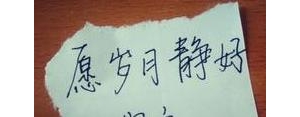 愿岁月静好